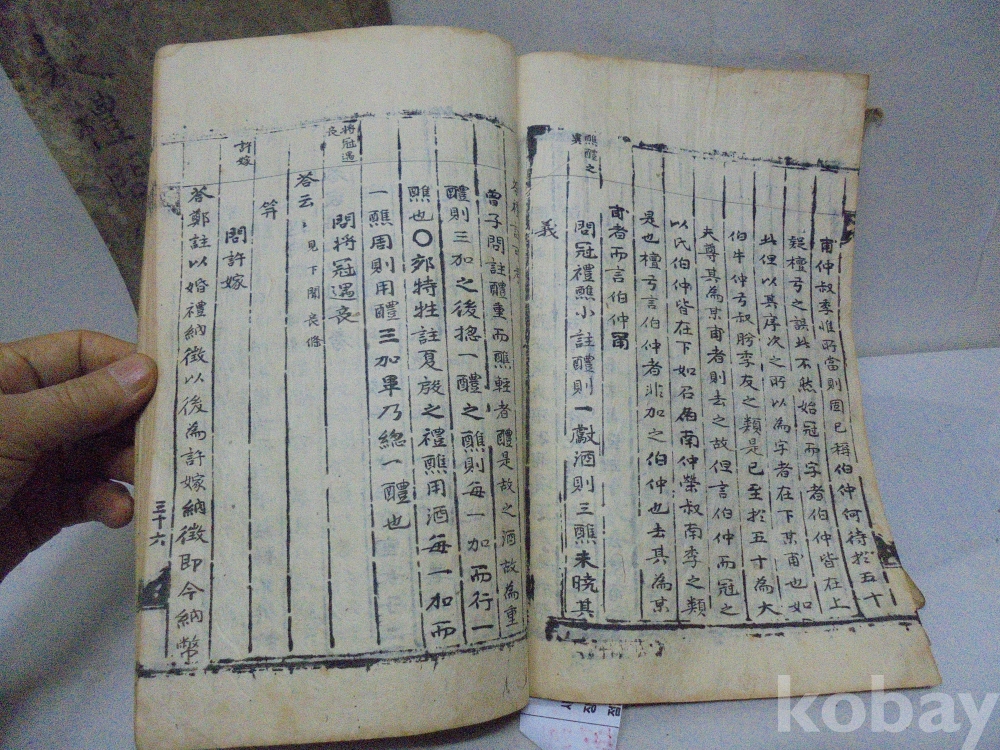 甫仲叔季惟所當則固已稱伯仲何待於五十
疑檀弓之誤此不然始冠而字者伯仲皆在上
此但以其序次之所以為字者在下某甫也如
伯牛仲弓叔肸季友之類是已至於五十為大
夫尊其為某甫者則去之故但言伯仲而冠之
以氏伯仲皆在下如召伯南仲榮叔南季之類
是也檀弓言伯仲者非加之伯仲也去其為某
甫者而言伯仲爾
醮醴之異
問冠禮醮小註醴則一獻酒則三醮未曉其
義
曾子問註醴重而醮輕者醴是故之酒故為重
醴則三加之後揔一醴之醮則每一加而行一
醮也〇郊特牲註夏殷之禮醮用酒每一加而
一醮周則用醴三加畢乃總一醴也
將冠遇喪
問將冠遇喪
答云
見下聞喪條
笄
許嫁
問許嫁
答鄭註以婚禮納徵以後為許嫁納徵即今納幣
三十六
kobay